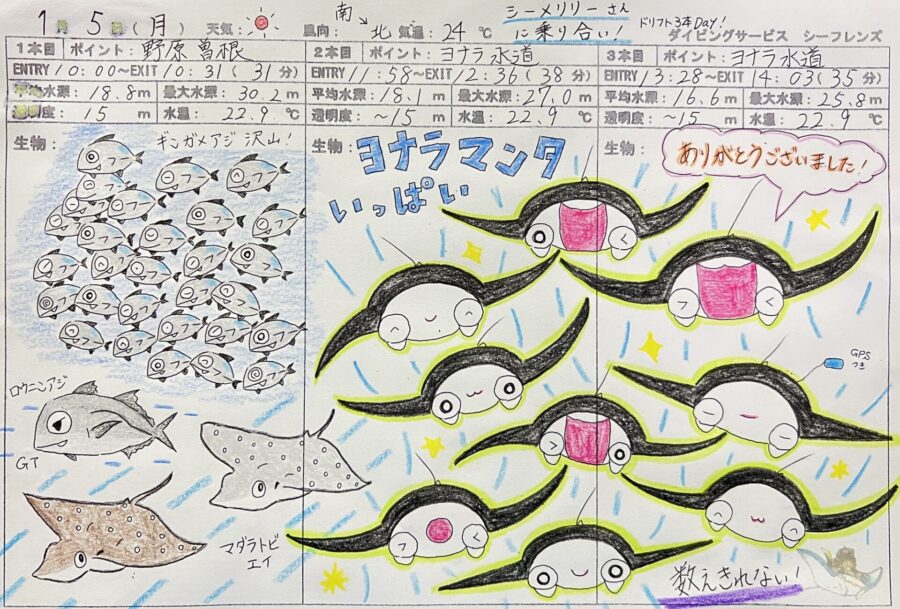 1月 5日(月) 天気: 風向: 南→北 気温: 24℃ シーメリリーさんに乗り合い! ドリフト3本Day! ダイビングサービス シーフレンズ
1本目 ポイント: 野原曽根
ENTRY 10:00~EXIT 10:31(31分)
平均水深: 18.8m 最大水深: 30.2m
透明度: 15m 水温: 22.9℃
生物:
ギンガメアジ 沢山!
ロウニンアジ
GT
マダラトビエイ
2本目 ポイント: ヨナラ水道
ENTRY 11:58~EXIT 12:36(38分)
平均水深: 18.1m 最大水深: 27.0m
透明度: ~15m 水温: 22.9℃
生物:
ヨナラマンタ
いっぱい
3本目 ポイント: ヨナラ水道
ENTRY 13:28~EXIT 14:03(35分)
平均水深: 16.6m 最大水深: 25.8m
透明度: ~15m 水温: 22.9℃
生物:
ありがとうございました!
GPS
つき
数えきれない!